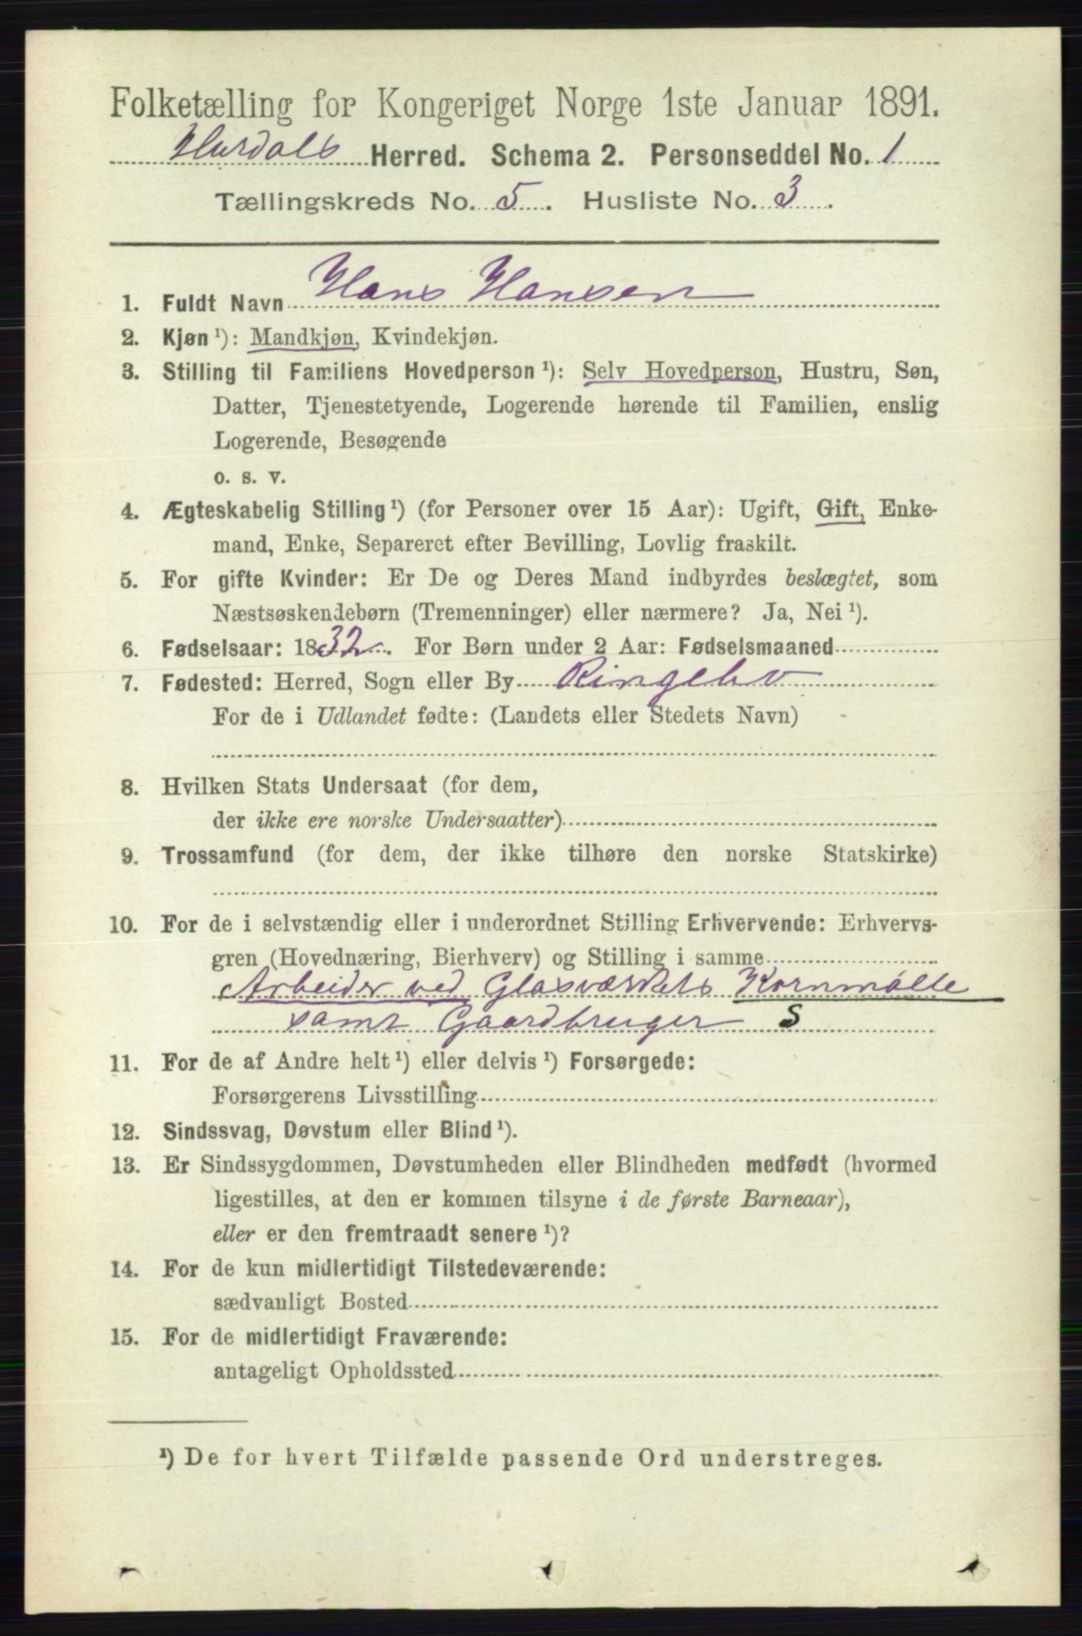 Folketælling for Kongeriget Norge 1ste Januar 1891.
Hurdals Herred. Schema 2. Personseddel No. 1
Tællingskreds No. 5. Husliste No. 3.
1. Fuldt Navn Hans Hansen
2. Kjøn ¹): Mandkjøn, Kvindekjøn.
3. Stilling til Familiens Hovedperson ¹): Selv Hovedperson, Hustru, Søn,
Datter, Tjenestetyende, Logerende hørende til Familien, enslig
Logerende, Besøgende
o. s. v.
4. Ægteskabelig Stilling ¹) (for Personer over 15 Aar): Ugift, Gift, Enke-
mand, Enke, Separeret efter Bevilling, Lovlig fraskilt.
5. For gifte Kvinder: Er De og Deres Mand indbyrdes beslægtet, som
Næstsøskendebørn (Tremenninger) eller nærmere? Ja, Nei ¹).
6. Fødselsaar: 1832. For Børn under 2 Aar: Fødselsmaaned
7. Fødested: Herred, Sogn eller By Ringebu
For de i Udlandet fødte: (Landets eller Stedets Navn)
8. Hvilken Stats Undersaat (for dem,
der ikke ere norske Undersaatter)
9. Trossamfund (for dem, der ikke tilhøre den norske Statskirke)
10. For de i selvstændig eller i underordnet Stilling Erhvervende: Erhvervs-
gren (Hovednæring, Bierhverv) og Stilling i samme
Arbeider ved Glasværkets Kornmølle
samt Gaardbruger S
11. For de af Andre helt ¹) eller delvis ¹) Forsørgede:
Forsørgerens Livsstilling
12. Sindssvag, Døvstum eller Blind ¹).
13. Er Sindssygdommen, Døvstumheden eller Blindheden medfødt (hvormed
ligestilles, at den er kommen tilsyne i de første Barneaar),
eller er den fremtraadt senere ¹)?
14. For de kun midlertidigt Tilstedeværende:
sædvanligt Bosted
15. For de midlertidigt Fraværende:
antageligt Opholdssted
¹) De for hvert Tilfælde passende Ord understreges.